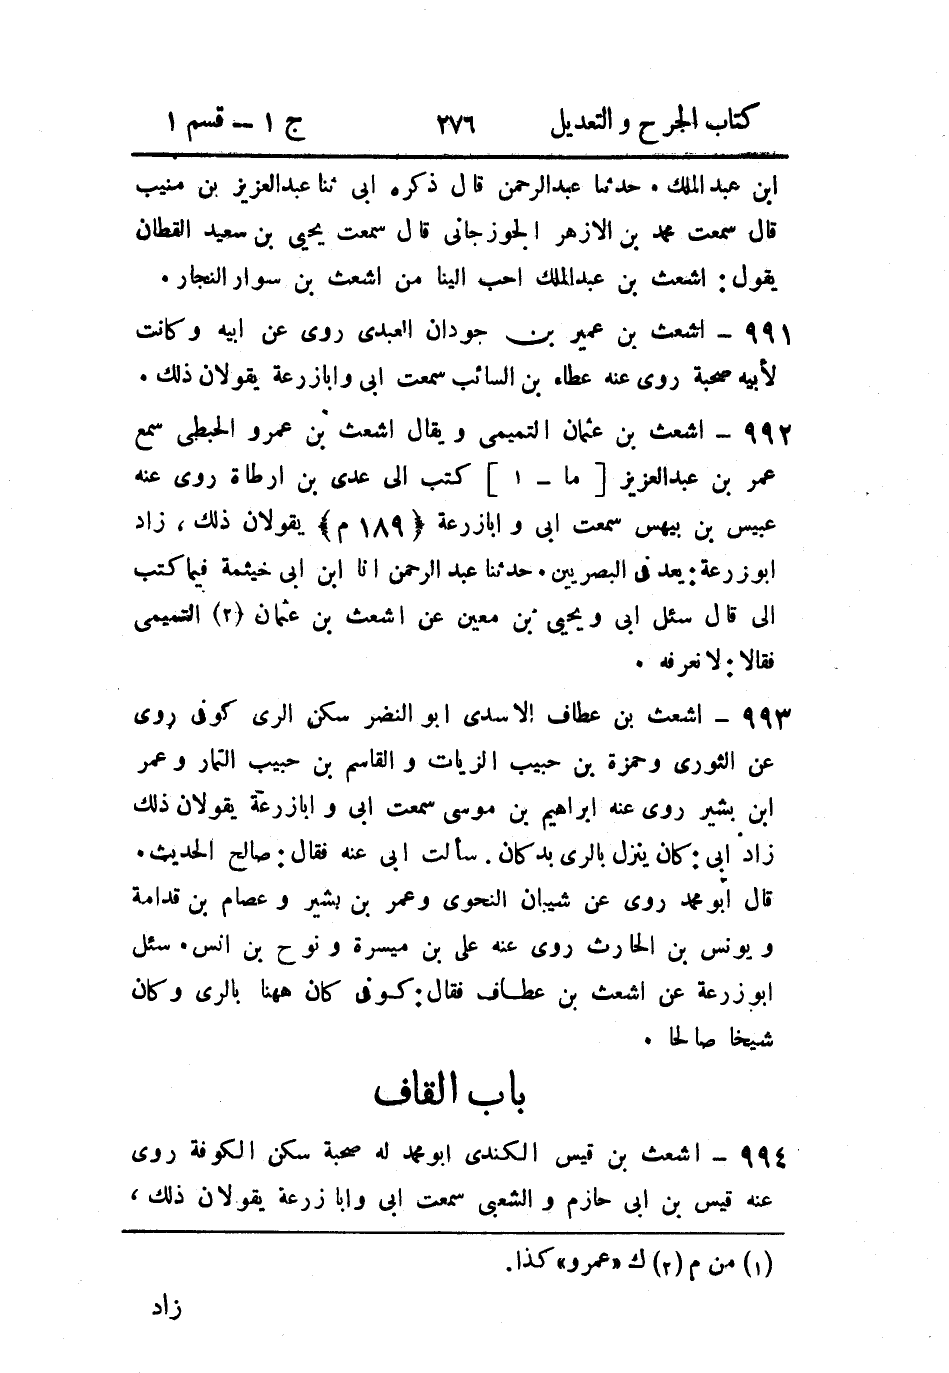 كتاب الجرح والتعديل ٢٧٦ ج ١ – قسم ١
ابن عبدالملك. حدثنا عبدالرحمن قال ذكره ابى ثنا عبدالعزيز بن منيب
قال سمعت محمد بن الازهر الجوزجانى قال سمعت يحيى بن سعيد القطان
يقول: اشعث بن عبدالملك احب الينا من اشعث بن سوار النجار.
٩٩١ – اشعث بن عمير بن جودان العبدى روى عن ابيه وكانت
لأبيه صحبة روى عنه عطاء بن السائب سمعت ابى وابازرعة يقولان ذلك.
٩٩٢ – اشعث بن عثمان التميمى ويقال اشعث بن عمرو الحبطى سمع
عمر بن عبدالعزيز [ ما – ١ ] كتب الى عدى بن ارطاة روى عنه
عبيس بن بيهس سمعت ابى وابازرعة ﴿١٨٩ م﴾ يقولان ذلك، زاد
ابوزرعة: يعد فى البصريين. حدثنا عبد الرحمن انا ابن ابى خيثمة فيما كتب
الى قال سئل ابى ويحيى بن معين عن اشعث بن عثمان (٢) التميمى
فقالا: لا نعرفه.
٩٩٣ – اشعث بن عطاف الاسدى ابو النضر سكن الرى كوفى روى
عن الثورى وحمزة بن حبيب الزيات والقاسم بن حبيب التمار وعمر
ابن بشير روى عنه ابراهيم بن موسى سمعت ابى وابازرعة يقولان ذلك
زاد ابى: كان ينزل بالرى بدكان. سألت ابى عنه فقال: صالح الحديث.
قال ابو محمد روى عن شيبان النحوى وعمر بن بشير وعصام بن قدامة
ويونس بن الحارث روى عنه على بن ميسرة ونوح بن انس. سئل
ابو زرعة عن اشعث بن عطاف فقال: كوفى كان ههنا بالرى وكان
شيخا صالحا.
باب القاف
٩٩٤ – اشعث بن قيس الكندى ابو محمد له صحبة سكن الكوفة روى
عنه قيس بن ابى حازم والشعبى سمعت ابى وابا زرعة يقولان ذلك،
(١) من م (٢) ك «عمرو» كذا.
زاد